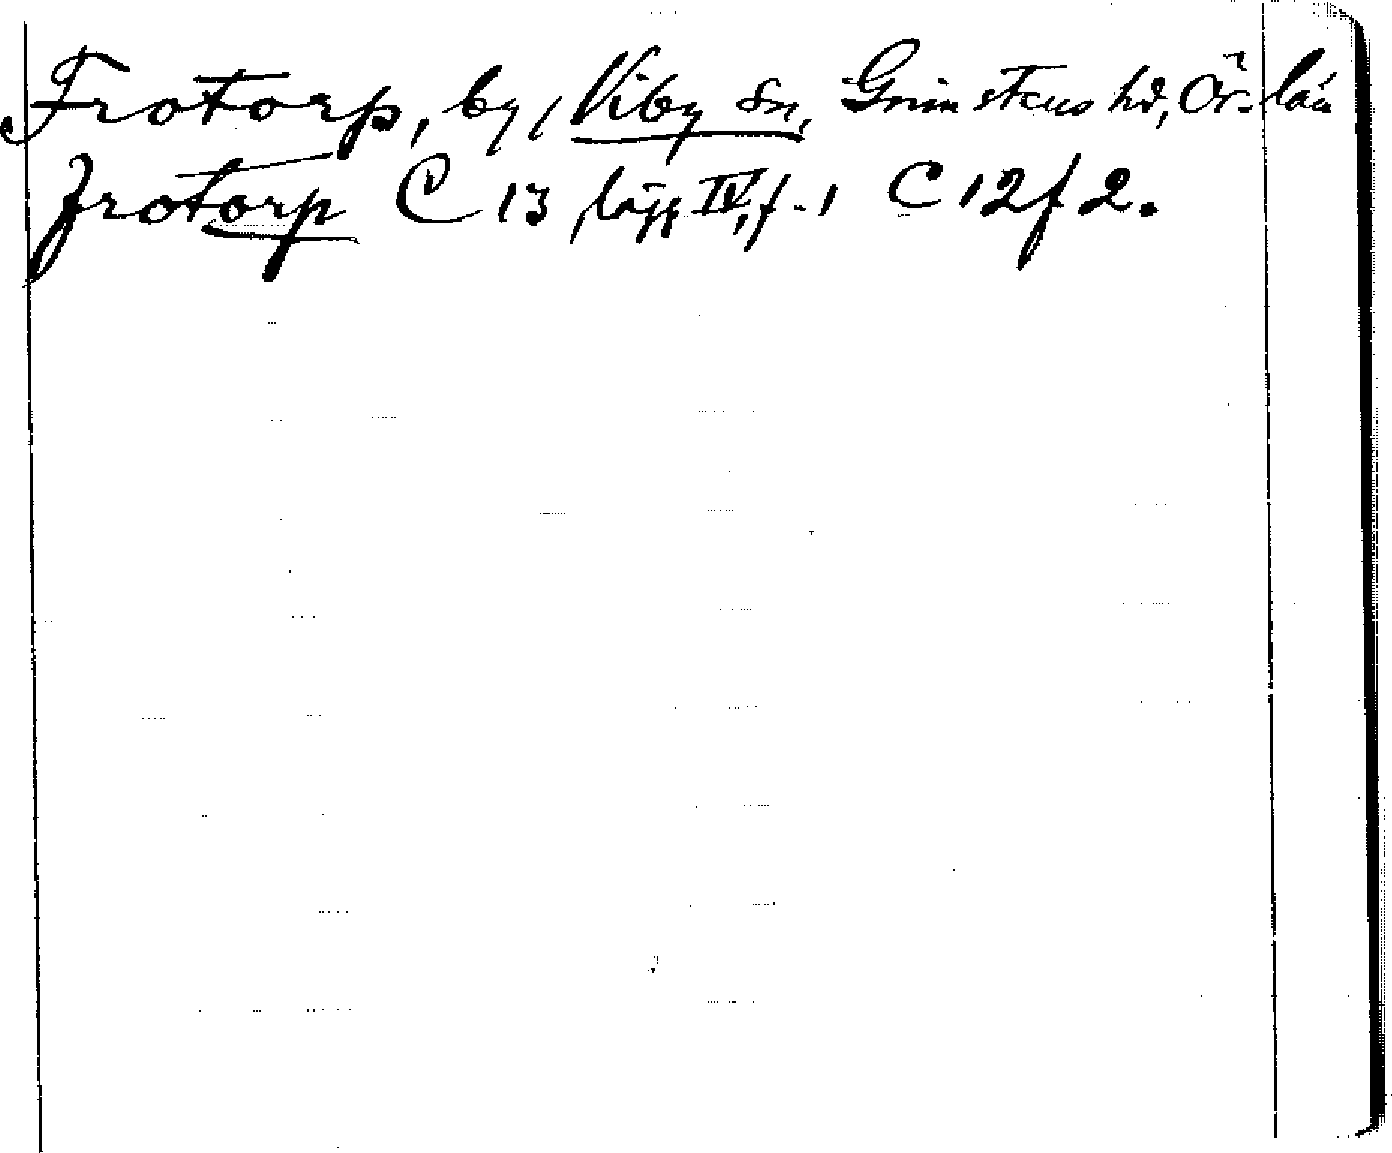 Frotorp, by, Viby sn, Grimstens hd, Ör. län
Frotorp C 13, lägg IV, f. 1 C 12 f 2.